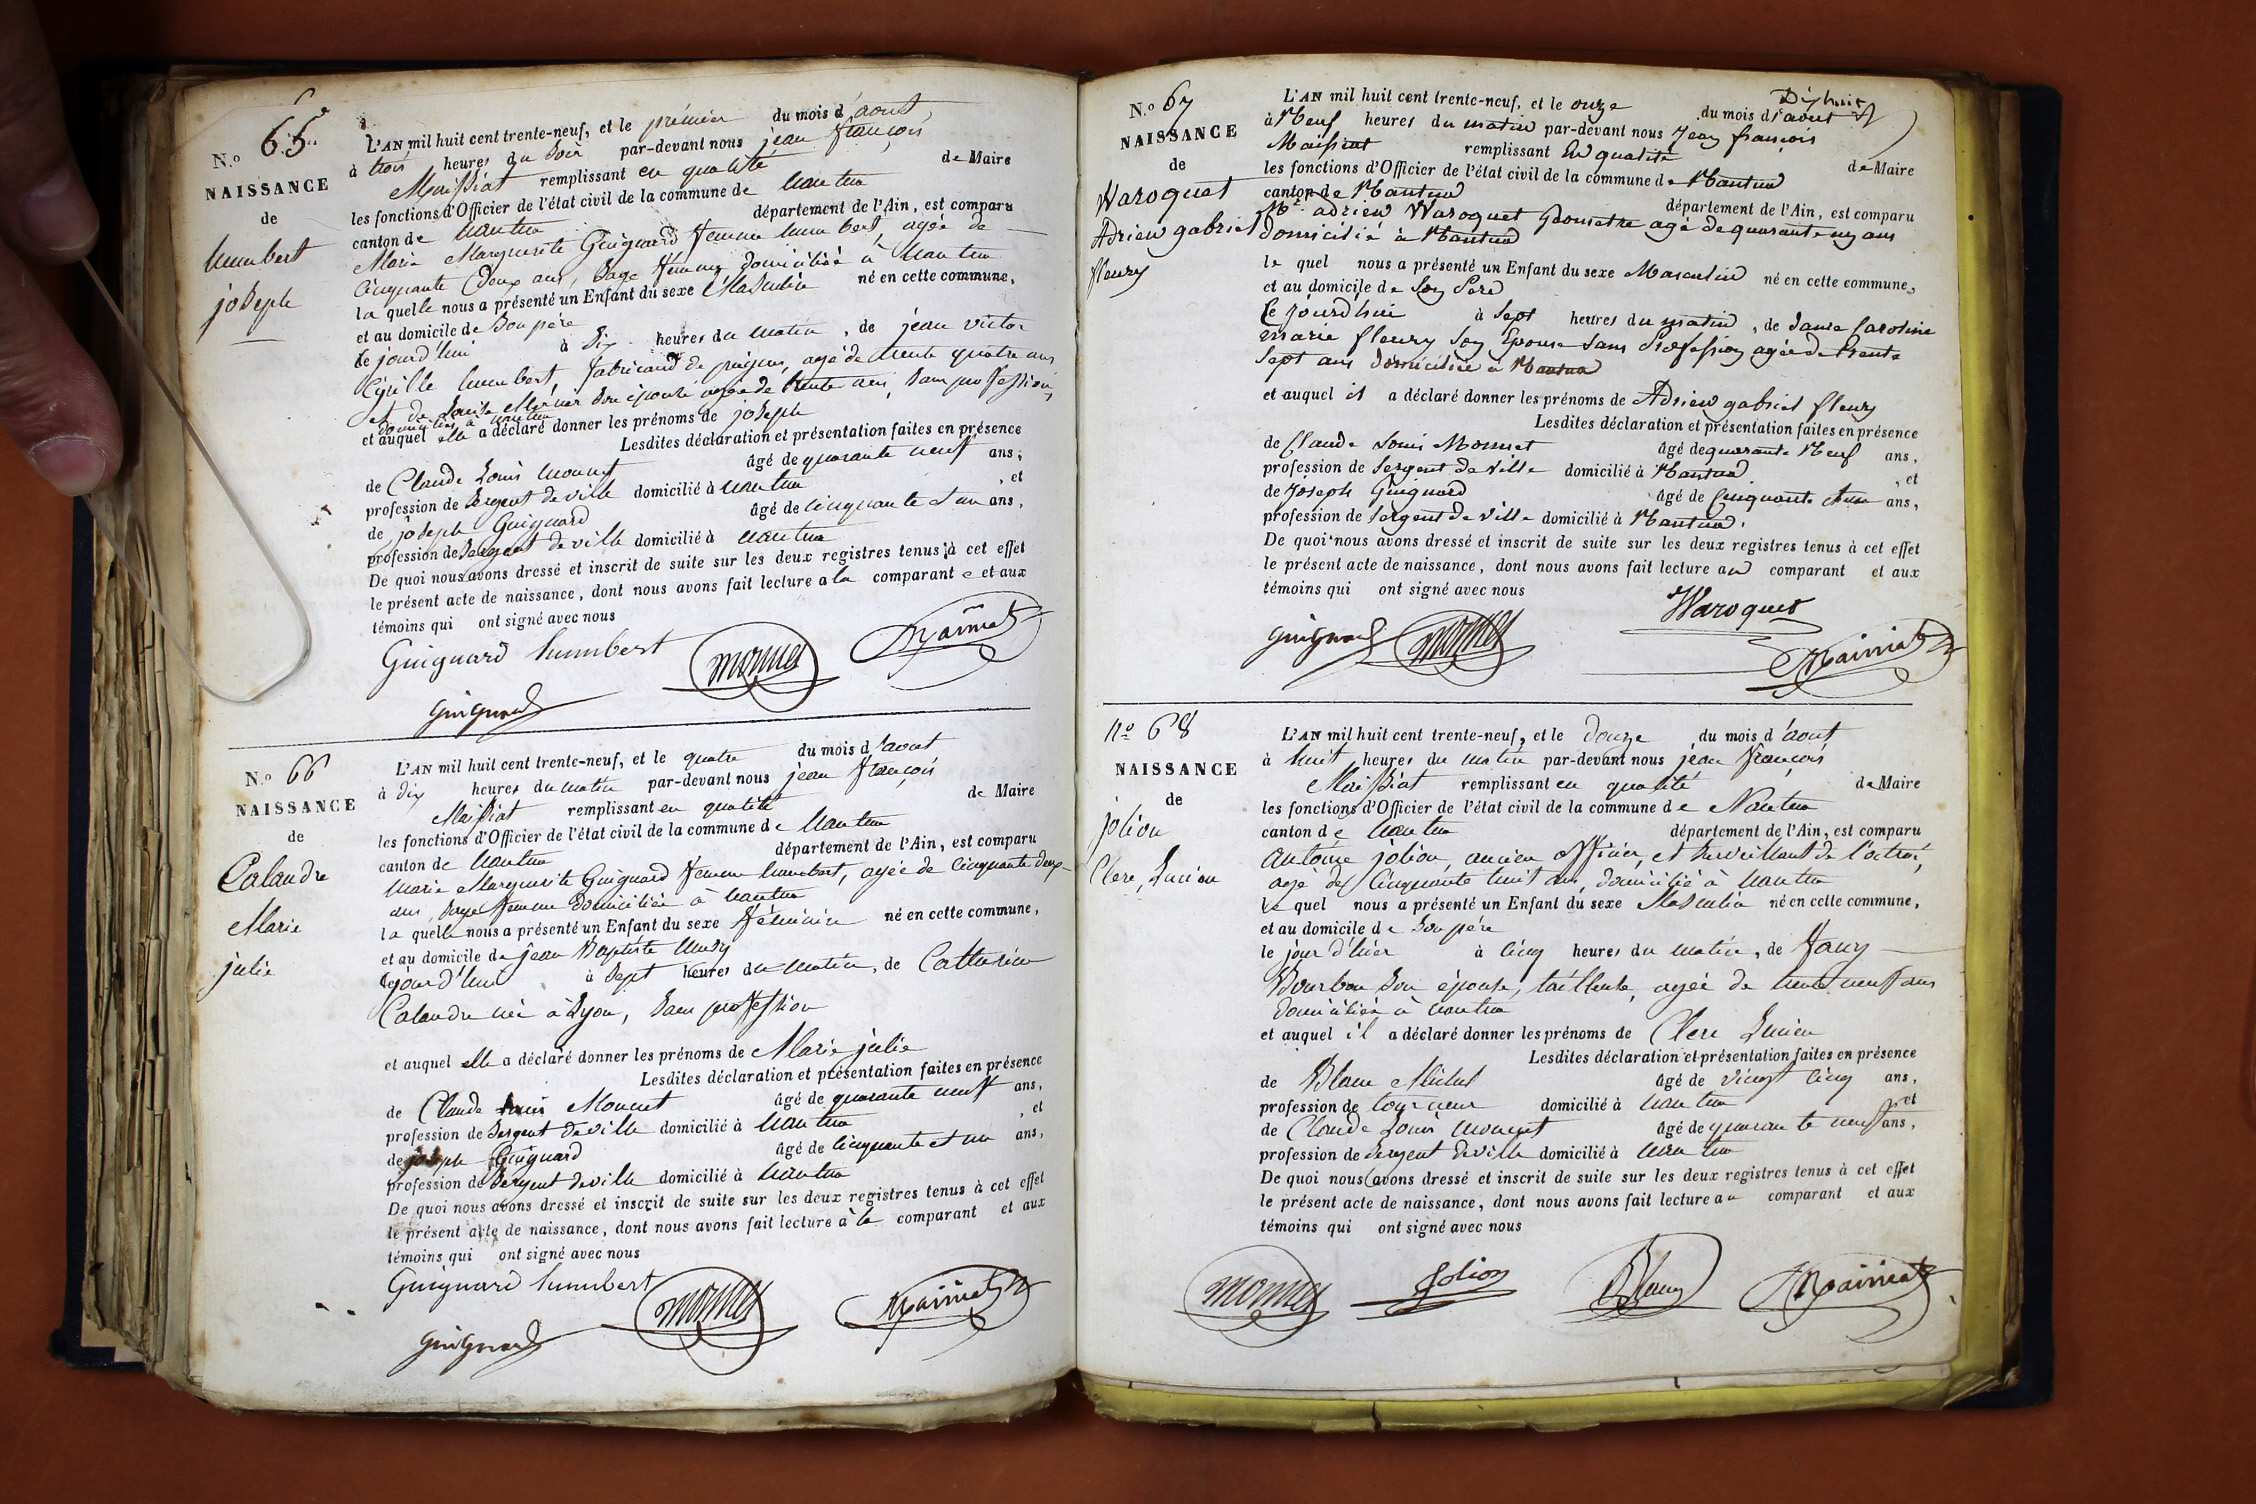 N.o 65
NAISSANCE
de
humbert
joseph
L'AN mil huit cent trente-neuf, et le premier du mois d'aout
à trois heures du soir par-devant nous jean françois
Maissiat remplissant en qualité de Maire
les fonctions d'Officier de l'état civil de la commune de nantua
canton de nantua département de l'Ain, est comparu
Marie Marguerite Guignard femme humbert, agée de
cinquante deux ans, sage femme domiciliée à nantua
la quelle nous a présenté un Enfant du sexe Masculin né en cette commune,
et au domicile de son père
le jourd'hui à dix heures du matin, de jean victor
Cyrille humbert, fabricant de peignes, agé de trente quatre ans
et de Louise son épouse agée de trente ans, sans proffession,
domiciliés à nantua
et auquel elle a déclaré donner les prénoms de joseph
Lesdites déclaration et présentation faites en présence
de Claude Louis monnet âgé de quarante neuf ans,
profession de sergent de ville domicilié à nantua, et
de joseph Guignard âgé de cinquante et un ans,
profession de sergent de ville domicilié à nantua
De quoi nous avons dressé et inscrit de suite sur les deux registres tenus à cet effet
le présent acte de naissance, dont nous avons fait lecture a la comparant e et aux
témoins qui ont signé avec nous
Guignard humbert monnet Maissiat
Guignard
N.o 66
NAISSANCE
de
Calandre
Marie
julie
L'AN mil huit cent trente-neuf, et le quatre du mois d'aout
à dix heures du matin par-devant nous jean françois
Maissiat remplissant en qualité de Maire
les fonctions d'Officier de l'état civil de la commune de nantua
canton de nantua département de l'Ain, est comparu
Marie Marguerite Guignard femme humbert, agée de cinquante deux
ans, sage femme domiciliée à nantua
la quelle nous a présenté un Enfant du sexe féminin né en cette commune,
et au domicile de jean Baptiste
le jourd'hui à sept heures du matin, de Catherine
Calandre née à Lyon, sans proffession
et auquel elle a déclaré donner les prénoms de Marie julie
Lesdites déclaration et présentation faites en présence
de Claude Louis Monnet âgé de quarante neuf ans,
profession de sergent de ville domicilié à nantua, et
de joseph Guignard âgé de cinquante et un ans,
profession de sergent de ville domicilié à nantua
De quoi nous avons dressé et inscrit de suite sur les deux registres tenus à cet effet
le présent acte de naissance, dont nous avons fait lecture à la comparant et aux
témoins qui ont signé avec nous
Guignard humbert monnet Maissiat
Guignard
N.o 67
NAISSANCE
de
Waroquet
Adrien gabriel
fleury
L'AN mil huit cent trente-neuf, et le onze du mois d'aout
à Neuf heures du matin par-devant nous Jean françois
Maissiat remplissant En qualité de Maire
les fonctions d'Officier de l'état civil de la commune de Nantua
canton de Nantua département de l'Ain, est comparu
Mr. adrien Waroquet Géometre agé de quarante un ans
domicilié à Nantua
le quel nous a présenté un Enfant du sexe Masculin né en cette commune,
et au domicile de son Père
le jourd'hui à sept heures du matin, de dame Caroline
marie fleury son Epouse sans Profession agée de trente
sept ans domiciliée à Nantua
et auquel il a déclaré donner les prénoms de Adrien gabriel fleury
Lesdites déclaration et présentation faites en présence
de Claude Louis Monnet âgé de quarante Neuf ans,
profession de sergent de ville domicilié à Nantua, et
de joseph Guignard âgé de cinquante et un ans,
profession de sergent de ville domicilié à Nantua.
De quoi nous avons dressé et inscrit de suite sur les deux registres tenus à cet effet
le présent acte de naissance, dont nous avons fait lecture au comparant et aux
témoins qui ont signé avec nous
Waroquet
Guignard monnet Maissiat
No 68
NAISSANCE
de
jolion
Clere, Lucien
L'AN mil huit cent trente-neuf, et le douze du mois d'aout
à huit heures du matin par-devant nous jean françois
Maissiat remplissant en qualité de Maire
les fonctions d'Officier de l'état civil de la commune de Nantua
canton de nantua département de l'Ain, est comparu
antoine jolion, ancien officier, et surveillant de l'octroi,
agé de cinquante huit ans, domicilié à nantua
le quel nous a présenté un Enfant du sexe Masculin né en cette commune,
et au domicile de son père
le jour d'hier à cinq heures du matin, de fany
Bourbon son épouse, tailleuse, agée de trente neuf ans
domiciliée à nantua
et auquel il a déclaré donner les prénoms de Clere Lucien
Lesdites déclaration et présentation faites en présence
de Blanc Michel âgé de vingt cinq ans,
profession de tourneur domicilié à nantua et
de Claude Louis monnet âgé de quarante neuf ans,
profession de sergent de ville domicilié à nantua
De quoi nous avons dressé et inscrit de suite sur les deux registres tenus à cet effet
le présent acte de naissance, dont nous avons fait lecture au comparant et aux
témoins qui ont signé avec nous
monnet Jolion Blanc Maissiat